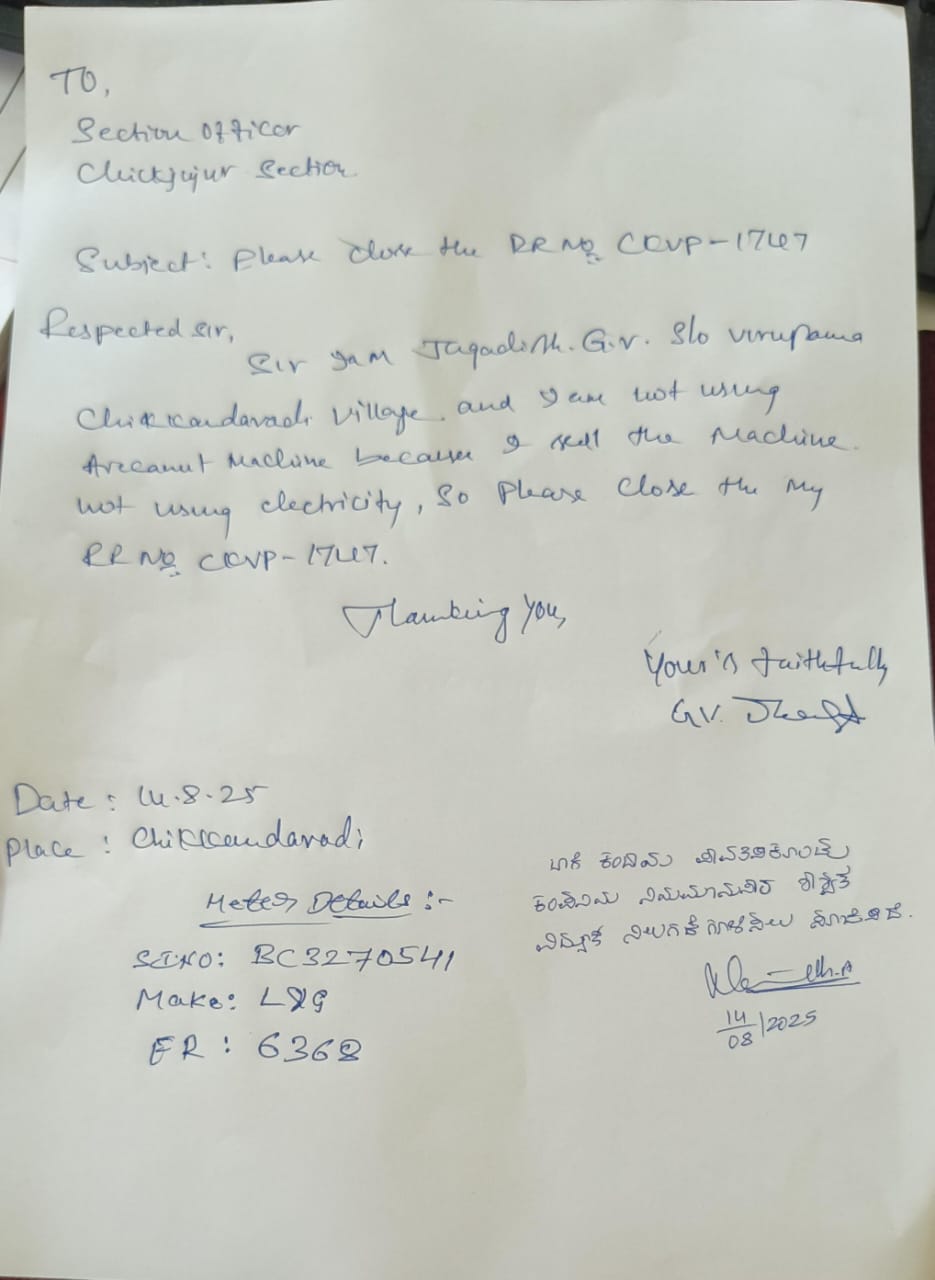 TO,
Section Officer
Chickjajur Section
Subject: Please close the RR NO CKVP-1747
Respected sir,
Sir I am Jagadish. G.V. S/o Virupama
Chikkandavadi Village. and I am not using
Arecanut Machine because I sell the Machine.
not using electricity, So Please Close the My
RR NO CKVP-1747.
Thanking You,
Your's faithfully
G.V.
Date : 14.8.25
Place : Chikkandavadi
Meter Details :-
SI NO: BC3270541
Make: L&G
FR : 6368
ಬಾಕಿ ಕಂದಾಯ
ನಿಯಮಾನುಸಾರ ಶಾಶ್ವತ
ವಿದ್ಯುತ್ ನಿಲುಗಡೆಗೊಳಿಸಲು
14/08/2025